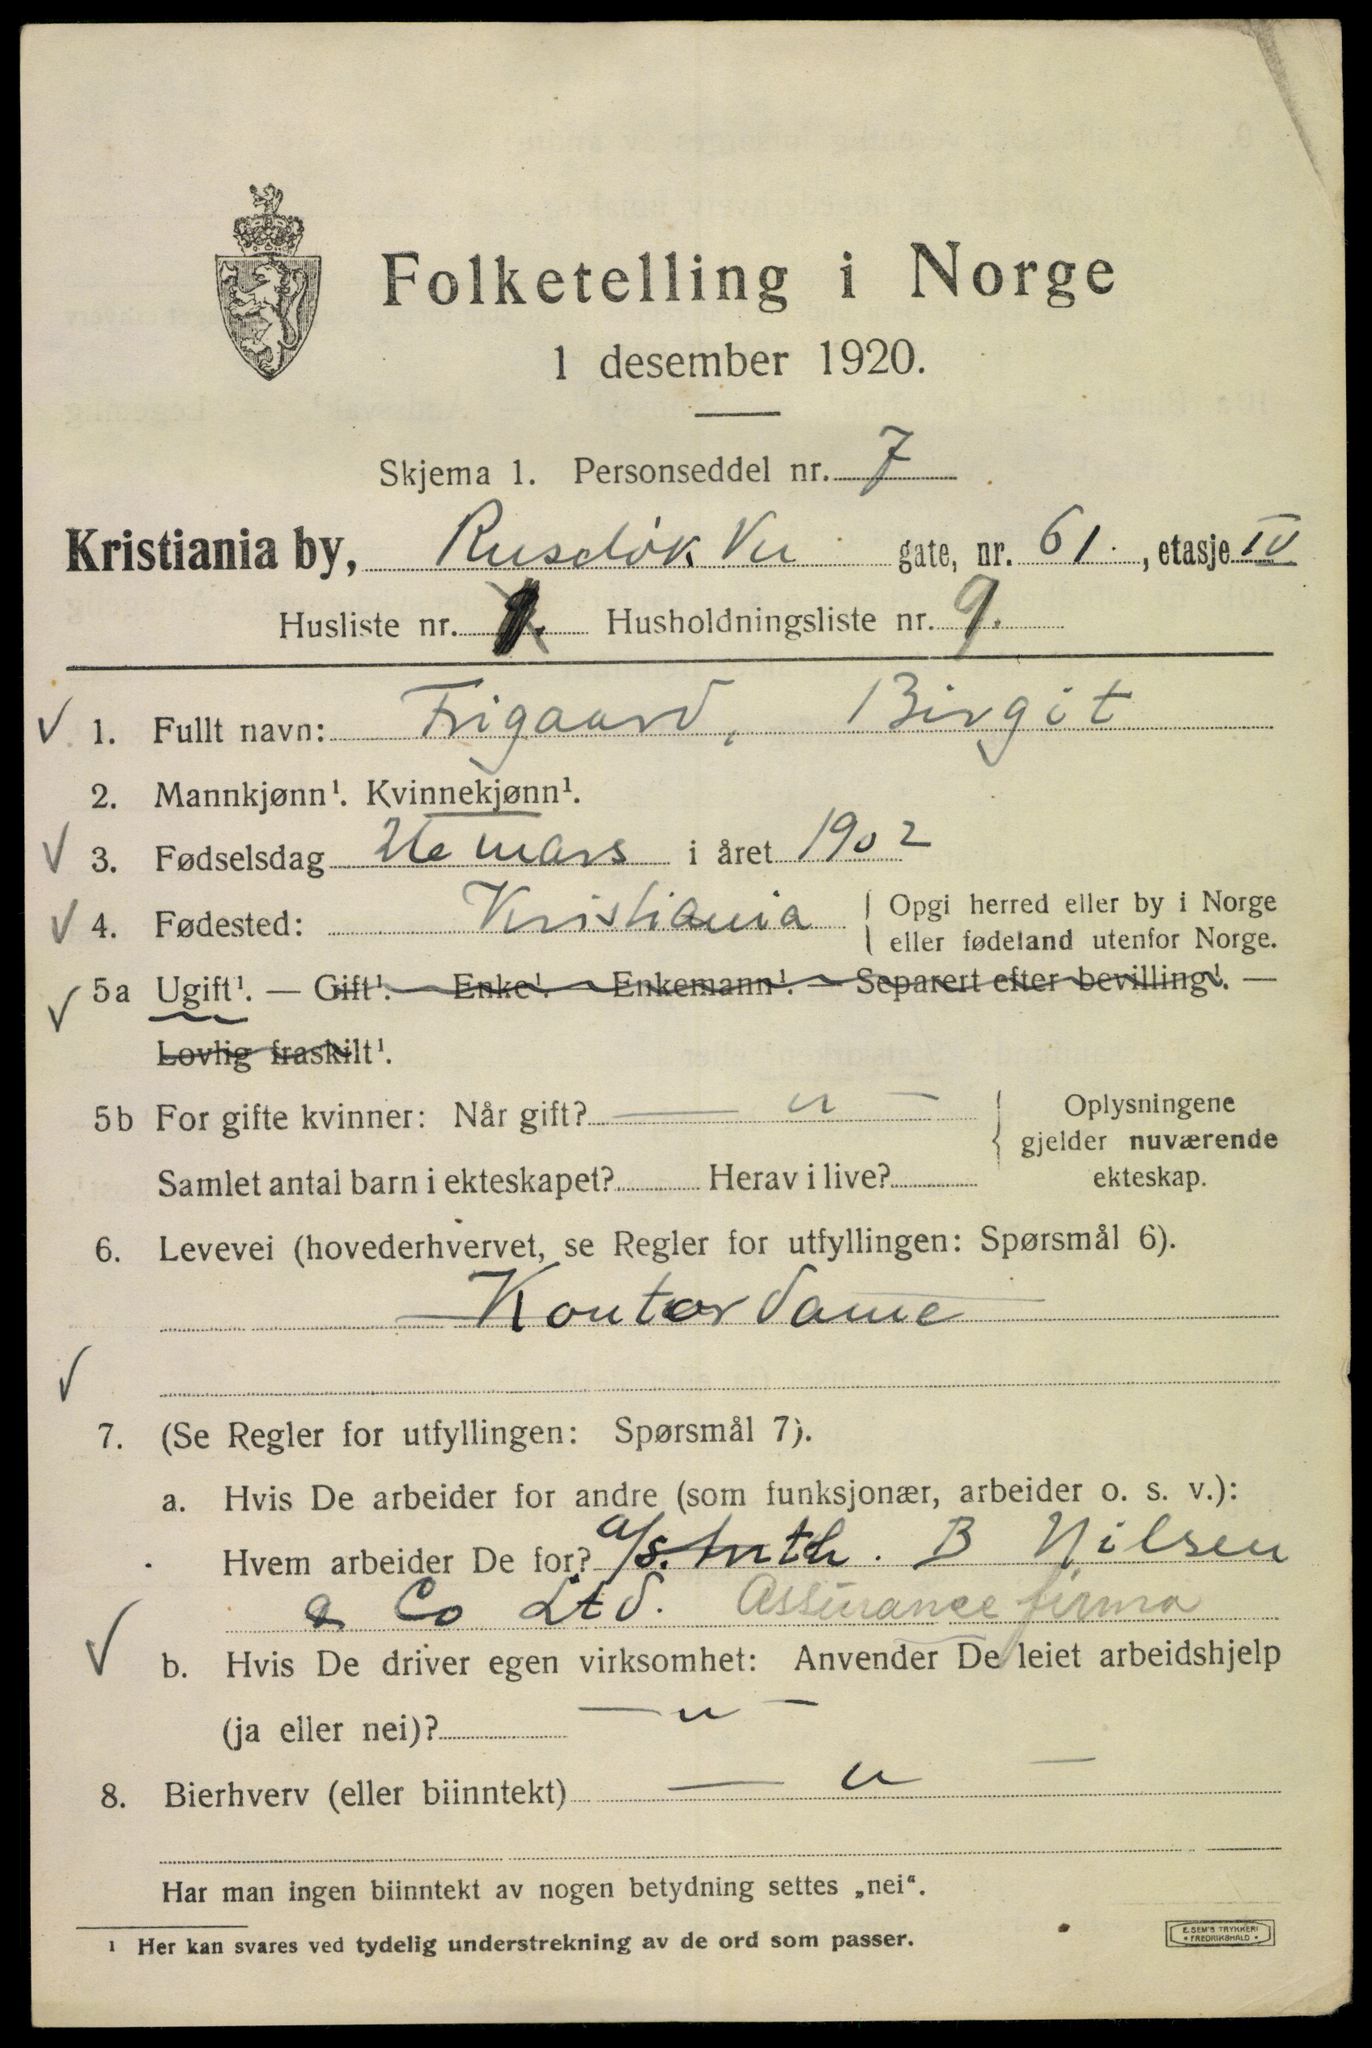 Folketelling i Norge
1 desember 1920.
Skjema 1. Personseddel nr. 7
Kristiania by, Rusdløk Vei gate, nr. 61. , etasje IV
Husliste nr. 1. Husholdningsliste nr. 9.
1. Fullt navn: Frigaard, Birgit
2. Mannkjønn¹. Kvinnekjønn¹.
3. Fødselsdag 2te mars i året 1902
4. Fødested: Kristiania
Opgi herred eller by i Norge
eller fødeland utenfor Norge.
5a Ugift¹. — Gift¹. — Enke¹. — Enkemann¹. — Separert efter bevilling¹. —
Lovlig fraskilt¹.
5b For gifte kvinner: Når gift? — u —
Samlet antal barn i ekteskapet? Herav i live?
Oplysningene
gjelder nuværende
ekteskap.
6. Levevei (hovederhvervet, se Regler for utfyllingen: Spørsmål 6).
Kontordame
7. (Se Regler for utfyllingen: Spørsmål 7).
a. Hvis De arbeider for andre (som funksjonær, arbeider o. s. v.):
Hvem arbeider De for? a/s. B Nilsen
& Co Ltd. Assurancefirma
b. Hvis De driver egen virksomhet: Anvender De leiet arbeidshjelp
(ja eller nei)? — u —
8. Bierhverv (eller biinntekt) — u —
Har man ingen biinntekt av nogen betydning settes „nei“.
¹ Her kan svares ved tydelig understrekning av de ord som passer.
E. SEM'S TRYKKERI
FREDRIKSHALD